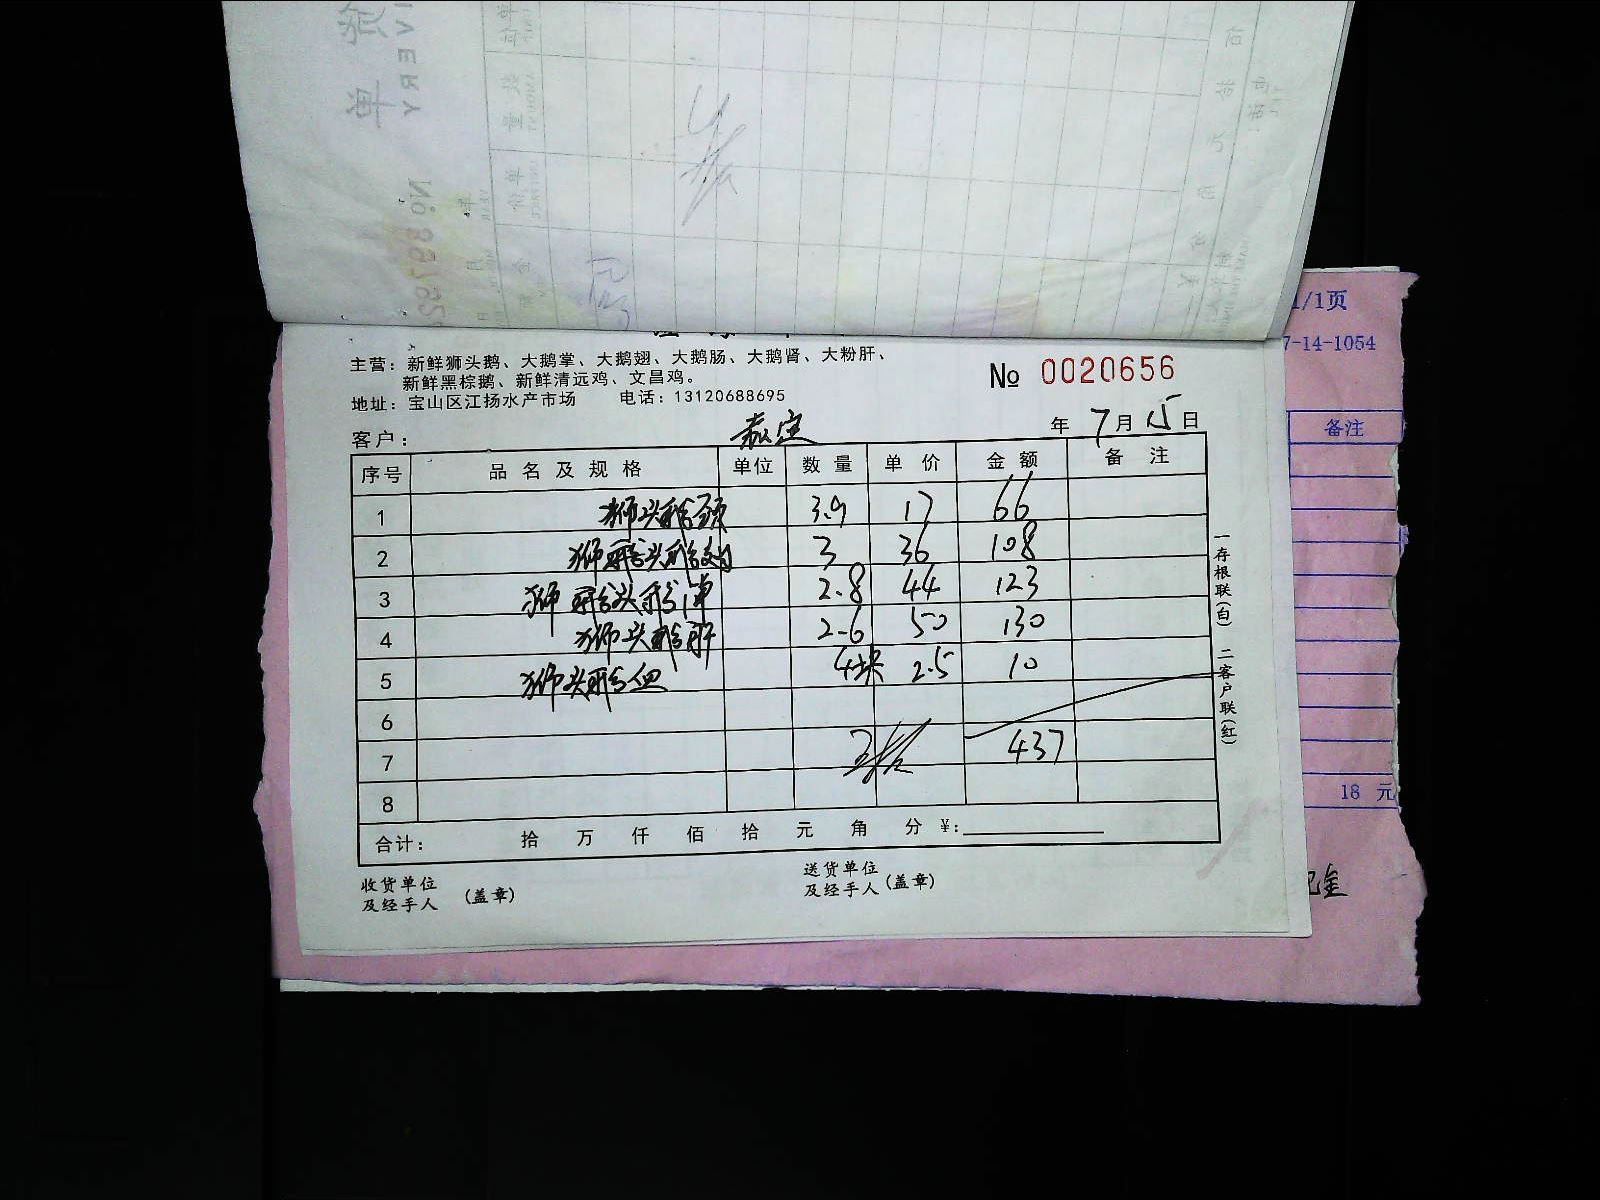 主营：新鲜狮头鹅、大鹅掌、大鹅翅、大鹅肠、大鹅肾、大粉肝、
新鲜黑棕鹅、新鲜清远鸡、文昌鸡。
地址：宝山区江扬水产市场 电话：13120688695
№ 0020656
客户： 嘉定 年 7 月 15 日
序号 品名及规格 单位 数量 单价 金额 备注
1 狮头鹅头 3.9 17 66
2 狮头鹅 3 36 108
3 狮头鹅 2.8 44 123
4 狮头鹅肝 2.6 50 130
5 狮头鹅血 4块 2.5 10
6
7 437
8
合计： 拾 万 仟 佰 拾 元 角 分 ¥：
收货单位
及经手人 （盖章）
送货单位
及经手人 （盖章）
一存根联（白） 二客户联（红）
1/1页
7-14-1054
备注
18 元